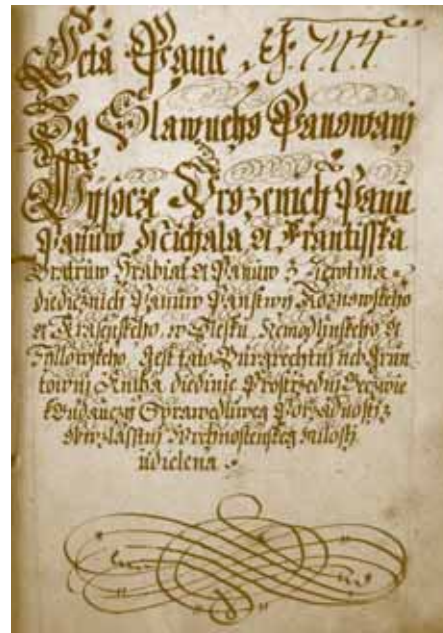 Letha Panie 1744
Za Slawneho Panowanj
Wysocze Urozenich Panu
Panuw Michala et Frantisska
Bratruw Hrabiat et Panuw z Zierotina
diedicznich Panuw Panstwy Rožnowskeho
et Krasenskeho, w Slesku, Nemodlynskeho et
Tyllowskeho, Gest tato Purgrechtnj neb Grun
townj Kniha diedinie Prostrzednj Beczwie
k Budauczy Sprawedliweg Porzadnosti z
obwzlasstnj Wrchnostenskeg milosti
udielena